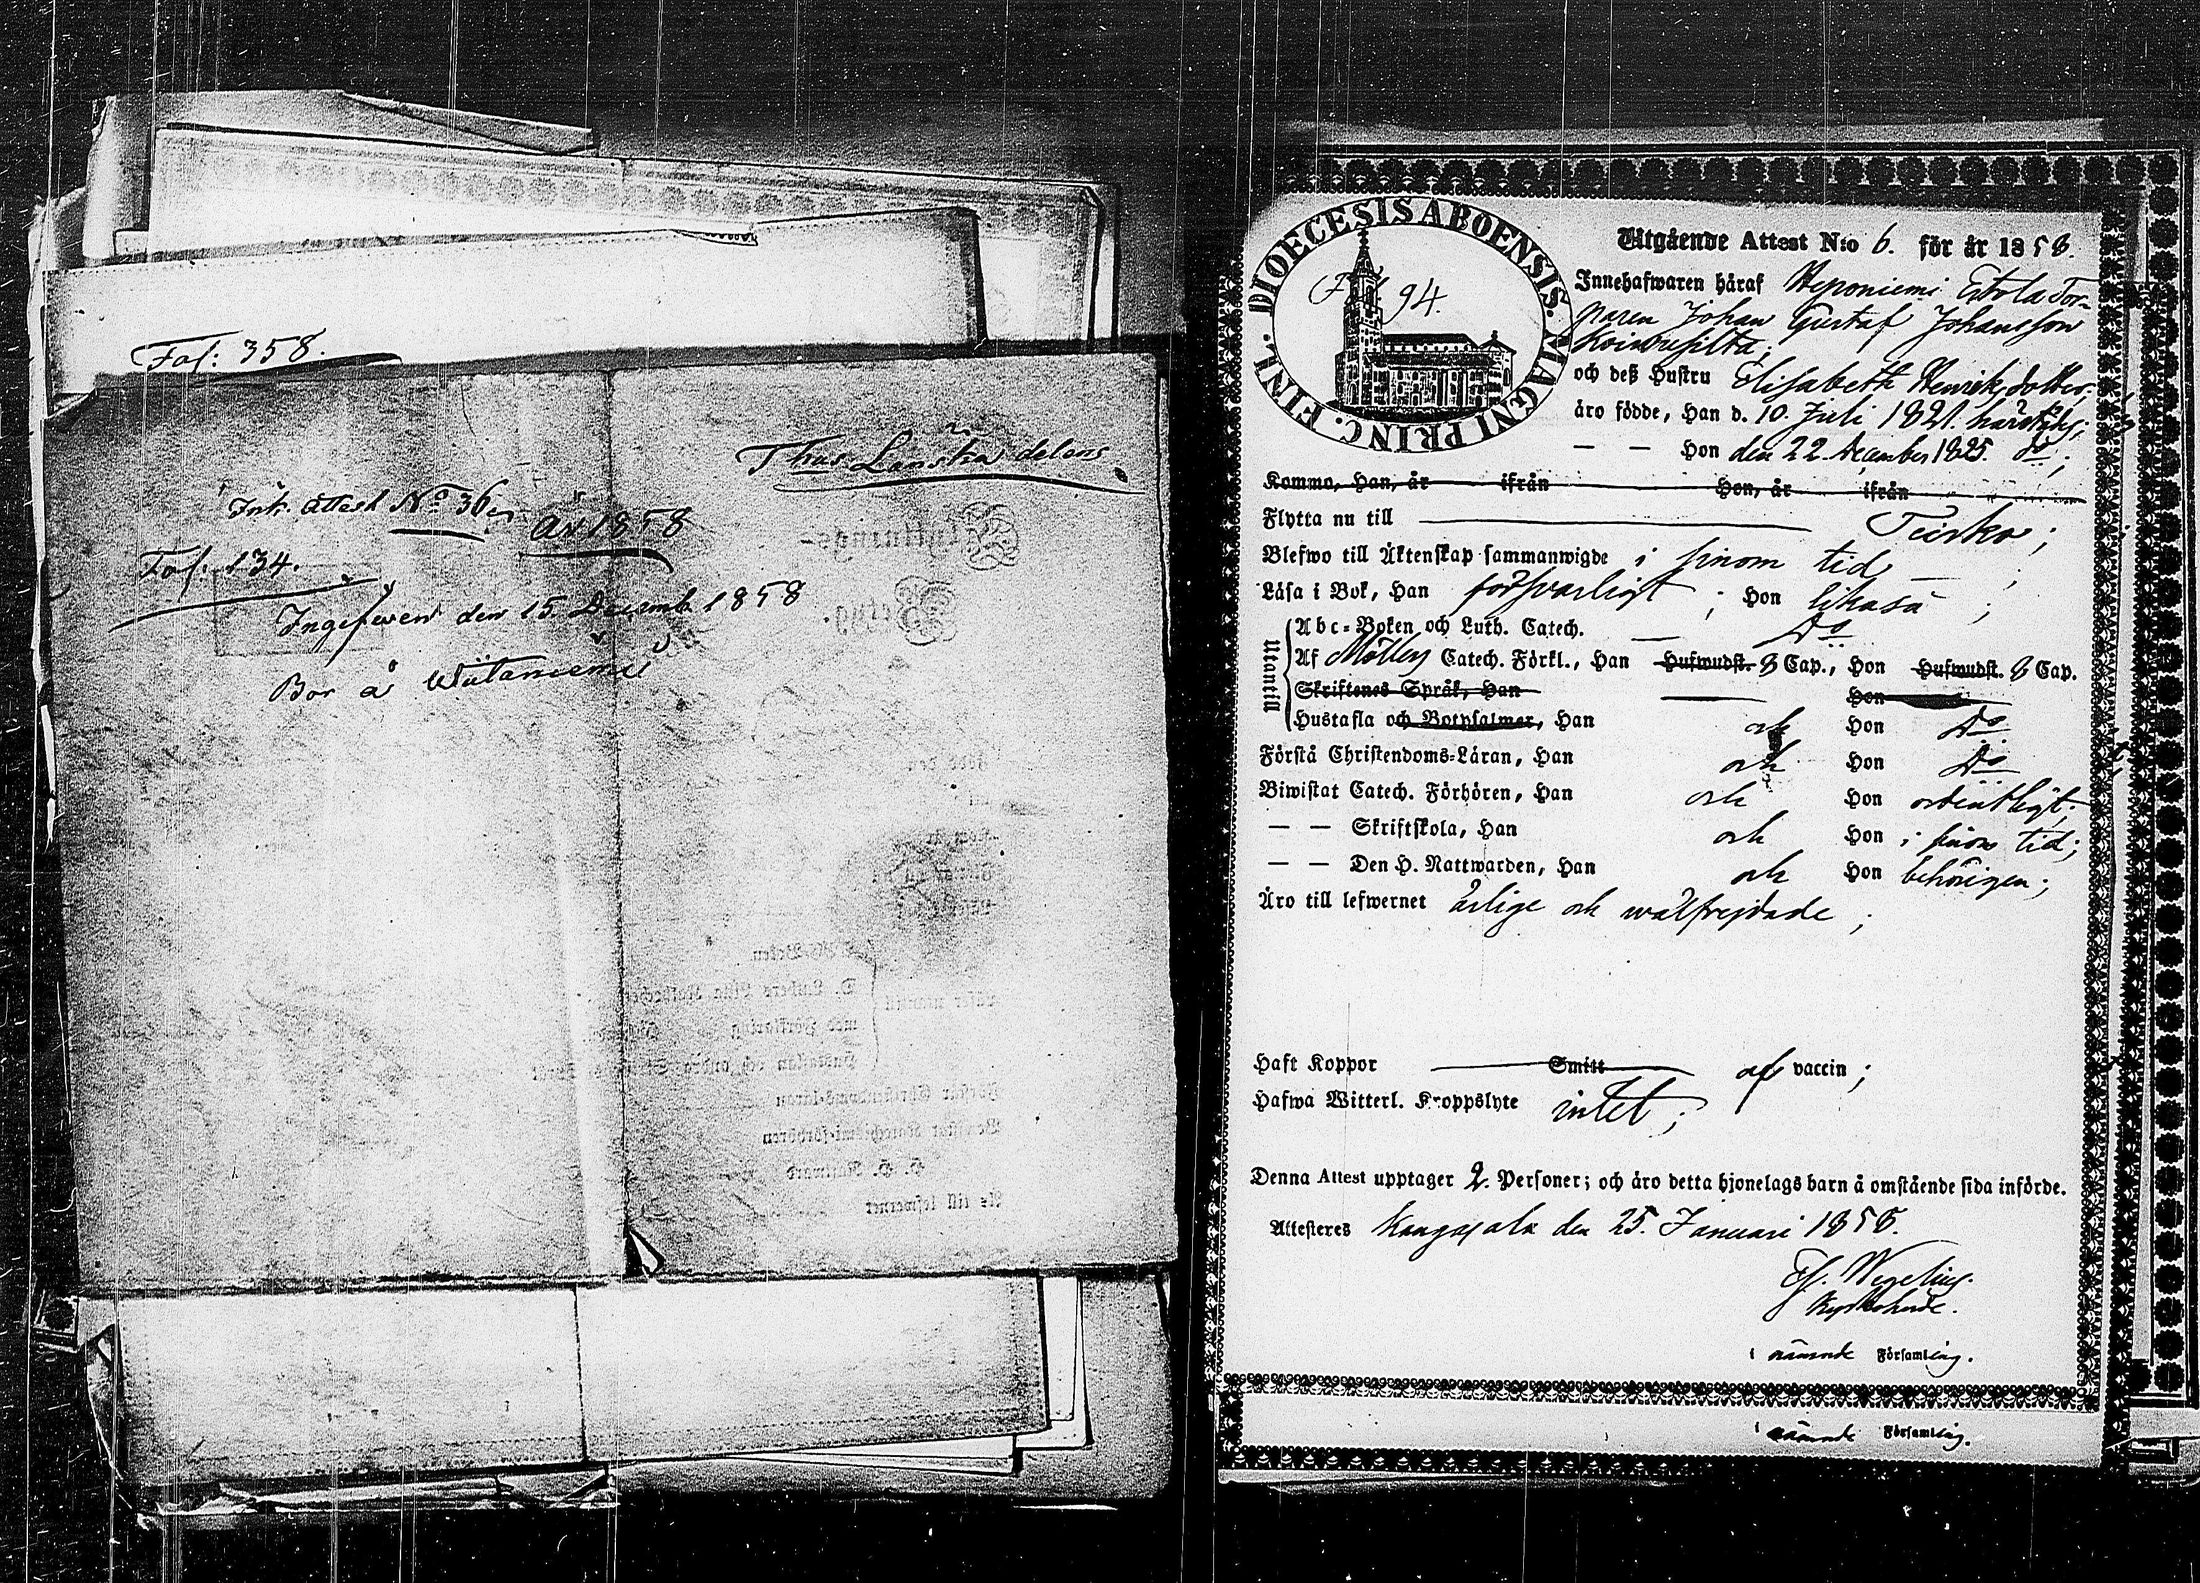 Fol: 358.
Thus Länska delens
Ink. Attest No 36 en
År 1858
Fol: 134.
Ingifven den 15. Decemb. 1858
Bor å Wiitaniemi
DIOECESIS ABOENSIS. MAGNI PRINC. FINL.
Fol. 94.
Utgående Attest N:o 6. för år 1858.
Innehafwaren häraf Heponiemi Eerola Tor-
paren Johan Gustaf Johansson
Koivusilta;
och deß Hustru Elisabeth Henriksdotter,
äro födde, Han d. 10. Juli 1821. härstädes;
— — Hon den 22. December 1825. do;
Komne, Han, år ifrån Hon, år ifrån
Flytta nu till Teisko;
Blefwo till Äktenskap sammanwigde i sinom tid;
Läsa i Bok, Han försvarligt; Hon likaså;
Utantill
Abc-Boken och Luth. Catech. — Do
Af Möllers Catech. Förkl., Han Hufwudst. 8 Cap., Hon Hufwudst. 8 Cap.
Skriftenes Språk, Han Hon
Hustafla och Botpsalmer, Han och Hon Do
Förstå Christendoms-Läran, Han och Hon Do
Biwistat Catech. Förhören, Han och Hon ordentligt;
— — Skriftskola, Han och Hon i sinom tid;
— — Den H. Nattwarden, Han och Hon behörigen;
Äro till lefwernet ärlige och wälfrejdade;
Haft Koppor Smitt af vaccin;
Hafwa Witterl. Kroppslyte intet;
Denna Attest upptager 2. Personer; och äro detta hjonelags barn å omstående sida införde.
Attesteres Kangasala den 25. Januari 1858.
Wegelius.
Kyrkoherde.
i nämnde Församling.
i nämnde Församling.